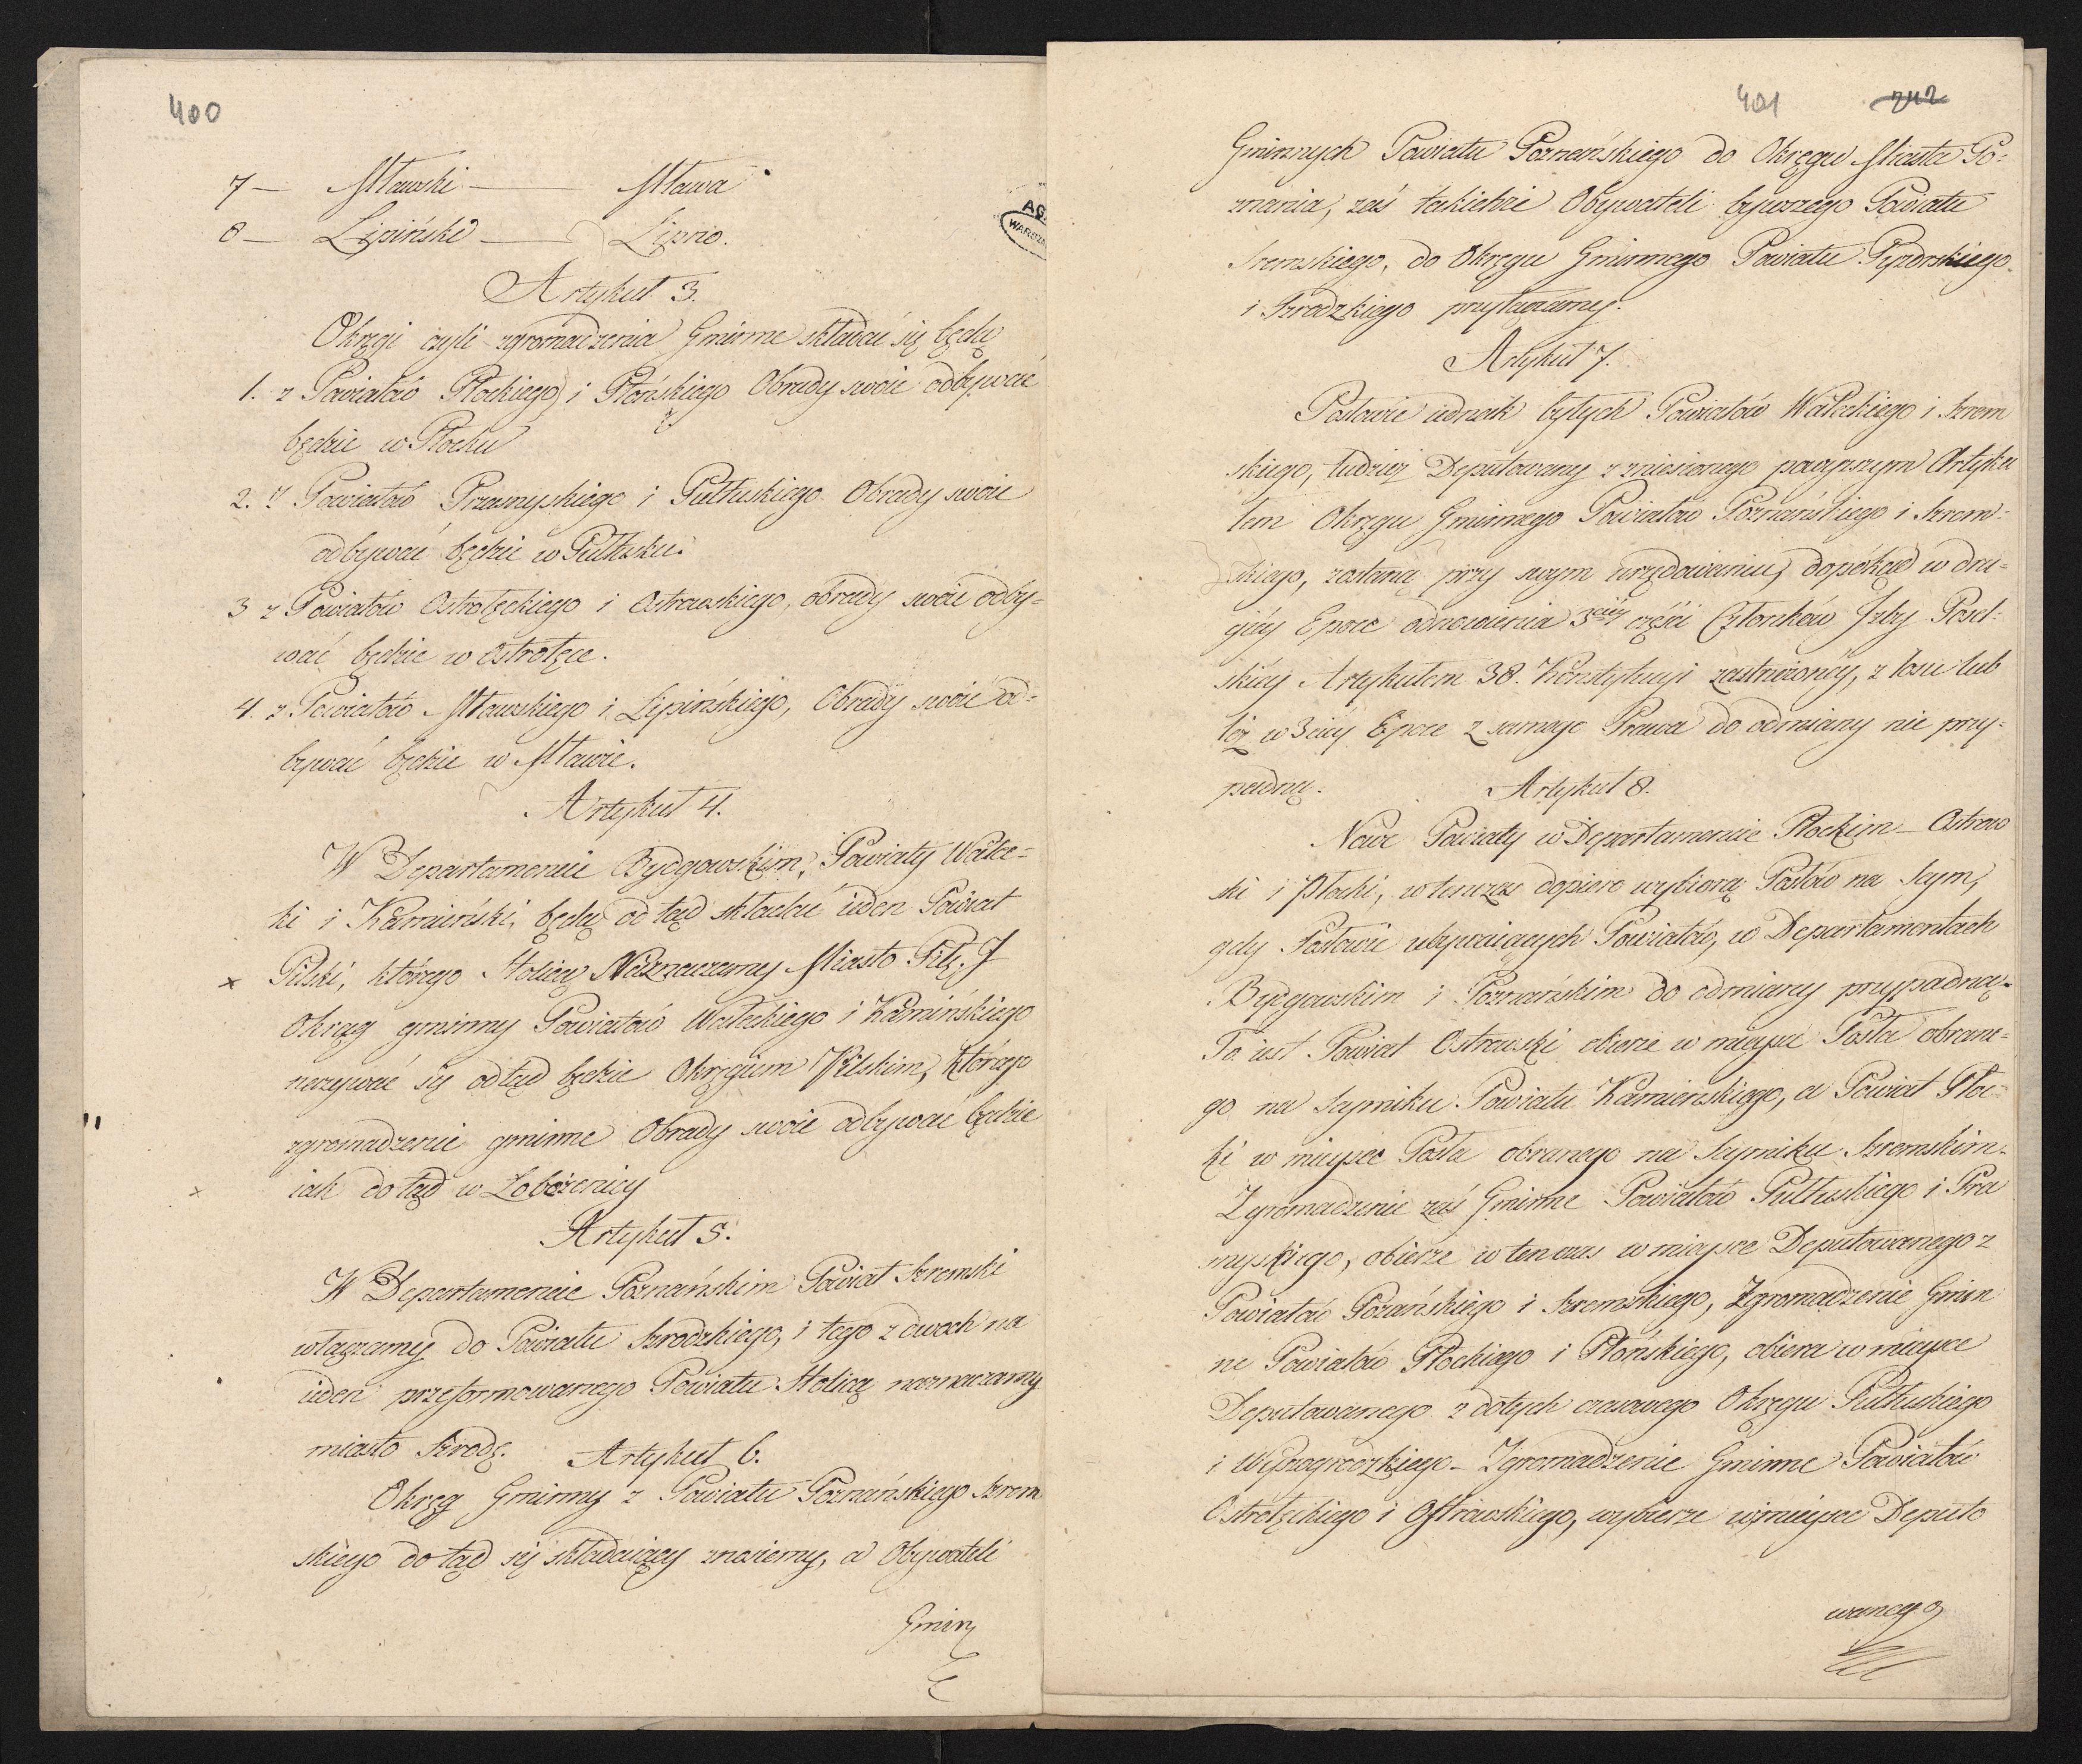 400
7 — Mławski — Mława
8 — Lipiński — Lipno.
Artykuł 3.
Okręgi czyli zgromadzenia Gminne składać się będą
1. z Powiatów Płockiego i Płońskiego Obrady swoie odbywać
będzie w Płocku
2. z Powiatów Przasnyskiego i Pułtuskiego Obrady swoie
odbywać będzie w Pułtusku.
3 z Powiatów Ostrołęckiego i Ostrowskiego, obrady swoie odby-
wać będzie w Ostrołęce.
4. z Powiatów Mławskiego i Lipińskiego, Obrady swoie od-
bywać będzie w Mławie.
Artykuł 4.
W Departamencie Bydgowskim, Powiaty Wałec-
ki i Kamieński, będą od tąd składać ieden Powiat
Pilski, którego Stolicą Naznaczamy Miasto Piłę. J
Okrąg gminny Powiatów Wałeckiego i Kamińskiego
nazywać się odtąd będzie Okręgiem Pilskim, którego
zgromadzenie gminne Obrady swoie odbywać będzie
iak do tąd w Łobżenicy
Artykuł 5.
W Departamencie Poznańskim Powiat Szremski
włączamy do Powiatu Szrodzkiego, i tego z dwoch na
ieden przeformowanego Powiatu Stolicą naznaczamy
miasto Szrodę. Artykuł 6.
Okręg Gminny z Powiatu Poznańskiego Szrem
skiego do tąd się składaiący znosiemy, a Obywateli
Gmin
AG
WARSZA
401 242
Gminnych Powiatu Poznańskiego do Okręgu Miasta Po-
znania, zaś takichże Obywateli bywszego Powiatu
Sremskiego, do Okręgu Gminnego Powiatu Pyzdrskiego
i Szrodzkiego przyłączamy.
Artykuł 7.
Posłowie iednak byłych Powiatów Wałeckiego i Szrem
skiego, tudzież Deputowany z zniesionego powyższym Artyku
łem Okręgu Gminnego Powiatów Poznańskiego i Szrem-
skiego, zostaną przy swym urzędowaniu, dopókąd w dru-
giéy Epoce odnowienia 3ciéy części Członków Izby Posel-
skiéy Artykułem 38. Konstytucyi zastrzeżonéy, z losu lub
też w 3ciéy Epoce z samego Prawa do odmiany nie przy-
padną. Artykuł 8.
Nowe Powiaty w Departamencie Płockim — Ostrow
ski i Płocki, wtenczas dopiero wybiorą Posłów na Seym,
gdy Posłowie ubywaiących Powiatów, w Departamentach
Bydgowskim i Poznańskim do odmiany przypadną.
To iest Powiat Ostrowski obierze w mieysce Posła obrane-
go na Seymiku Powiatu Kamienskiego, a Powiat Płoc
ki w mieysce Posła obranego na Seymiku Szremskim.
Zgromadzenie zaś Gminne Powiatów Pułtuskiego i Prza
snyskiego, obierze w ten czas w mieysce Deputowanego z
Powiatów Pozańskiego i Szremskiego, Zgromadzenie Gmin
ne Powiatów Płockiego i Płońskiego, obiera w mieysce
Deputowanego z dotych czasowego Okręgu Pułtuskiego
i Wyszogrodzkiego — Zgromadzenie Gminne Powiatów
Ostrołęckiego i Ostrowskiego, wybierze w mieysce Deputo
wanego